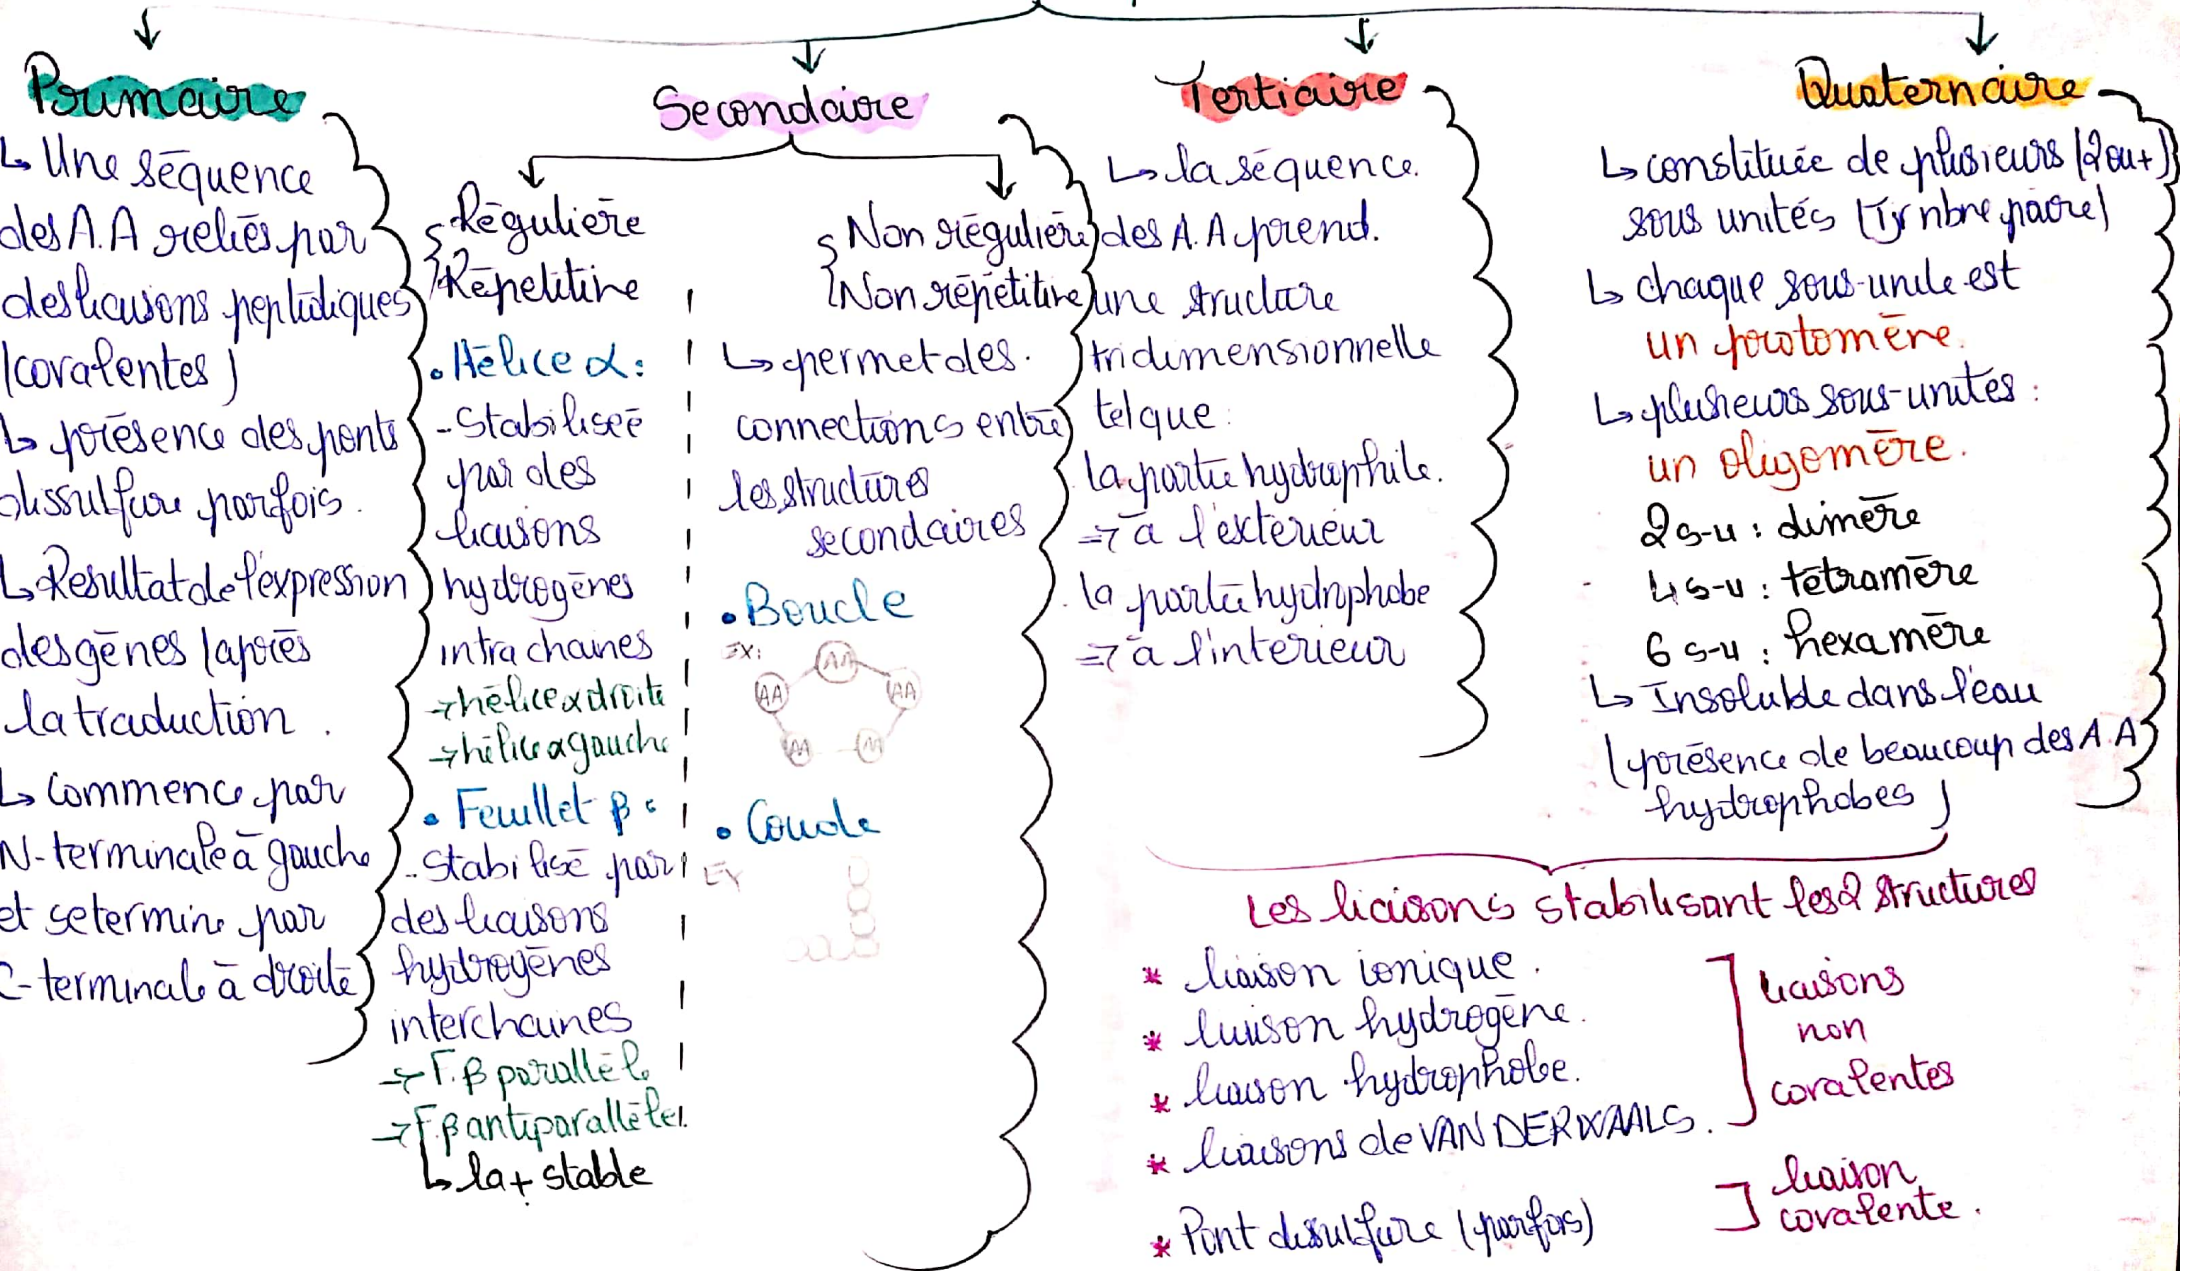 Primaire
↳ Une séquence
des A.A reliés par
des liaisons peptidiques
(covalentes)
↳ présence des ponts
dissulfure parfois.
↳ Resultat de l'expression
des gènes (après
la traduction.
↳ Commence par
N-terminale à gauche
et se termine par
C-terminale à droite
Secondaire
Régulière
Répetitive
• Hélice α :
- Stabiliseé
par des
liaisons
hydrogènes
intra chaines
→ hélice α droite
→ hélice α gauche
• Feuillet β :
- Stabilisé par
des liaisons
hydrogènes
interchaines
→ F. β parallèle
→ F. β antiparallèle.
↳ la + stable
Non régulière
Non répétitive
↳ permet des
connections entre
les structures
secondaires
• Boucle
EX:
AA
AA
AA
AA
AA
• Coude
EX
Tertiaire
↳ la séquence
des A.A prend
une structure
tridimensionnelle
tel que :
. la partie hydrophile.
⇒ à l'extérieur
. la partie hydrophobe
⇒ à l'interieur
Quaternaire
↳ constituée de plusieurs (2 ou +)
sous unités (Tjr nbre paire)
↳ chaque sous-unité est
un protomère.
↳ plusieurs sous-unités :
un oligomère.
2 s-u : dimère
4 s-u : tétramère
6 s-u : hexamère
↳ Insoluble dans l'eau
(présence de beaucoup des A.A
hydrophobes)
Les liaisons stabilisant les 2 structures
* liaison ionique.
* liaison hydrogène.
* liaison hydrophobe.
* liaisons de VAN DER WAALS.
liaisons
non
covalentes
* Pont disulfure (parfois)
liaison
covalente.